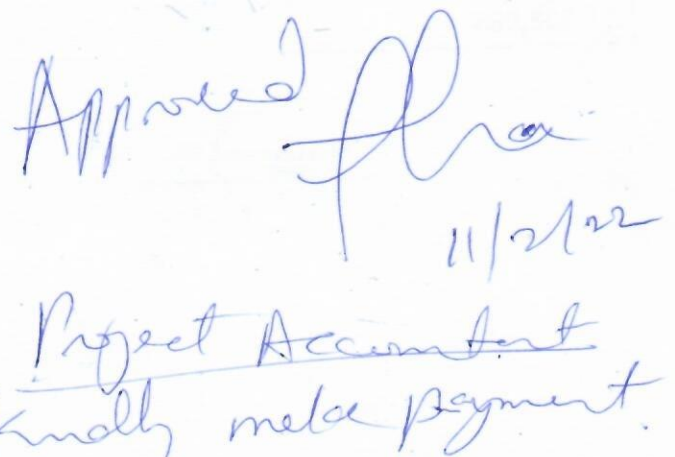 Approved
11/2/22
Project Accountant
Kindly make payment.